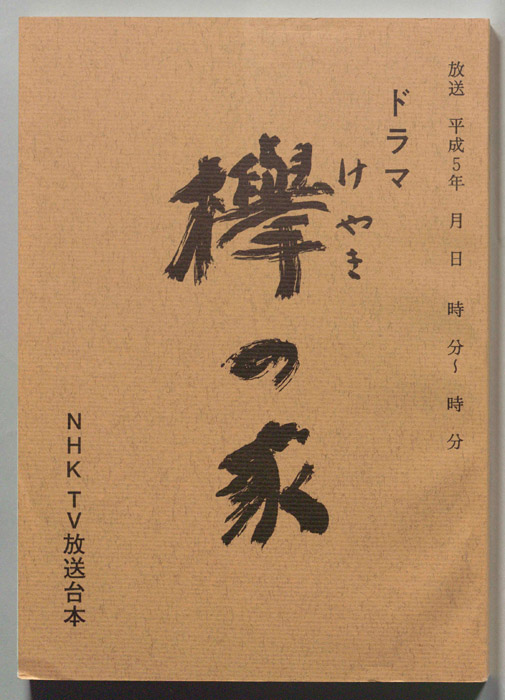 放送 平成5年 月 日 時 分〜 時 分
ドラマ
けやき
欅の家
NHK TV放送台本